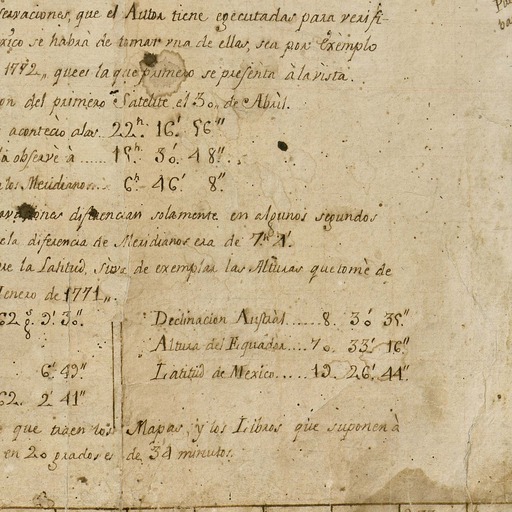 servaciones, que el Autor tiene egecutadas para verifi-
xico se habrà de tomar vna de ellas, sea por Exemplo
1772,, que es la que primero se presenta à la vista.
on del primero Satelite el 30,, de Abril.
aconteciò alas 22h. 16' 56"
observè à ...... 15h. 30' 48"..
los Meridianos... 6h 46' 8"
vaciones diferencian solamente en algunos segundos
ela diferencia de Meridianos era de 7h
ue la Latitud, Sirva de exemplar las Alturas que tomè de
enero de 1771,,
62 9' 30"
Declinacion Austràl ...... 8. 30' 35"
Altura del Equador .... 70. 33' 16"
6' 49"
Latitùd de Mexico ..... 19. 26' 44"
62. 2' 41"
que traen los Mapas, y los Libros que suponen à
en 20 grados de 34 minutos.